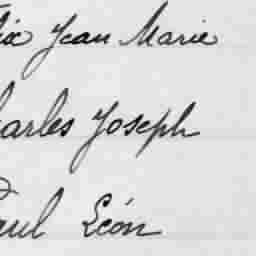 Jean Marie
Charles Joseph
Paul Léon